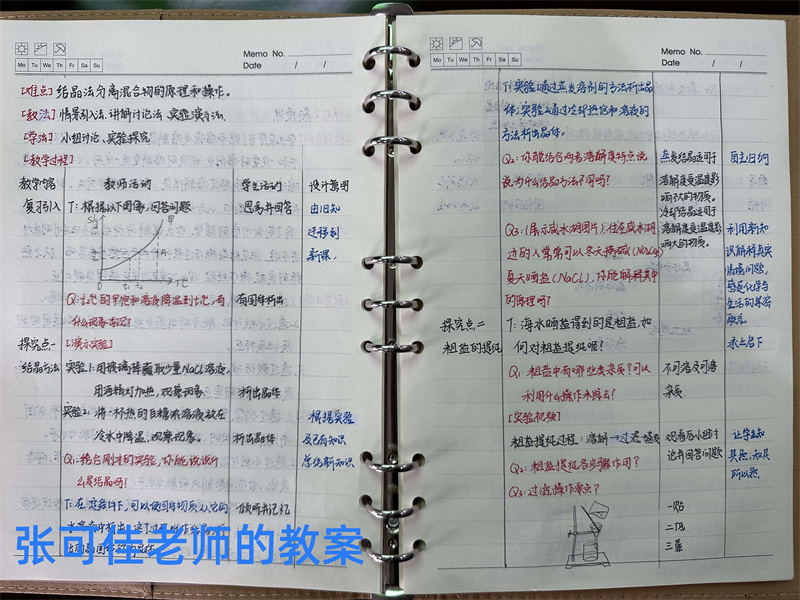 Memo No.
Mo Tu We Th Fr Sa Su
Date / /
[难点] 结晶法分离混合物的原理和操作。
[教法] 情景引入法、讲解讨论法、实验演示法
[学法] 小组讨论、实验探究
[教学过程]
教学内容 教师活动 学生活动 设计意图
复习引入 T: 根据以下图像,回答问题 思考并回答 由旧知
迁移到
新课。
S/g
甲
A
0 t₁ t₂ t/℃
有固体析出
什么现象出现?
探究点一 [演示实验]
结晶方法 实验1: 用玻璃棒蘸取少量NaCl溶液,
用酒精灯加热,观察现象 析出晶体
实验2: 将一杯热的 浓溶液放在 根据实验
冷水中降温,观察现象。 析出晶体 及已有知识
总结新知识
Q: 结合刚才的实验,你能说说什
么是结晶吗?
倾听并记忆
张可佳老师的教案
Memo No.
Mo Tu We Th Fr Sa Su
Date / /
T: 实验1通过蒸发溶剂的方法析出晶
体;实验2通过冷却热饱和溶液的
方法析出晶体。
Q₂: 你能结合两者溶解度特点说 蒸发结晶适用于 自主归纳
说为什么结晶方法不同吗? 溶解度受温度影
响不大的物质。
冷却结晶适用于
溶解度受温度影
响大的物质。
Q₃: (展示咸水湖图片) 住在咸水湖
边的人常常可以冬天捞碱(Na₂CO₃)
夏天晒盐(NaCl),你能解释其中
的原理吗?
利用新知
识解释真实
情境问题,
感受化学与
生活的紧密
联系。
探究点二 T: 海水晒盐得到的是粗盐,如 承上启下
粗盐的提纯 何对粗盐提纯呢?
Q₁: 粗盐中有哪些类杂质?可以 不可溶及可溶
利用什么操作来除去? 杂质
[实验视频]
粗盐提纯过程: 溶解→过滤→蒸发 观看后小组讨 让学生知
论并回答问题 其然,知其
所以然。
Q₂: 粗盐提纯各步骤作用?
Q₃: 过滤操作要点?
一贴
二低
三靠